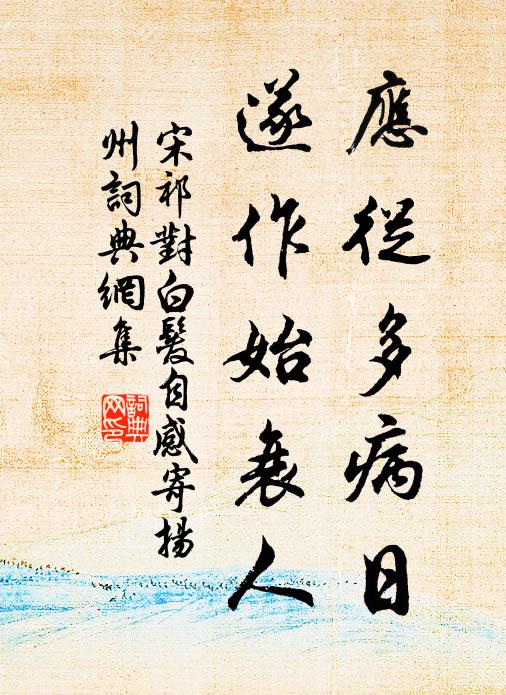 應從多病日
遂作始衰人
宋祁對白髮自感寄揚
州詞典網集
詞典
网印